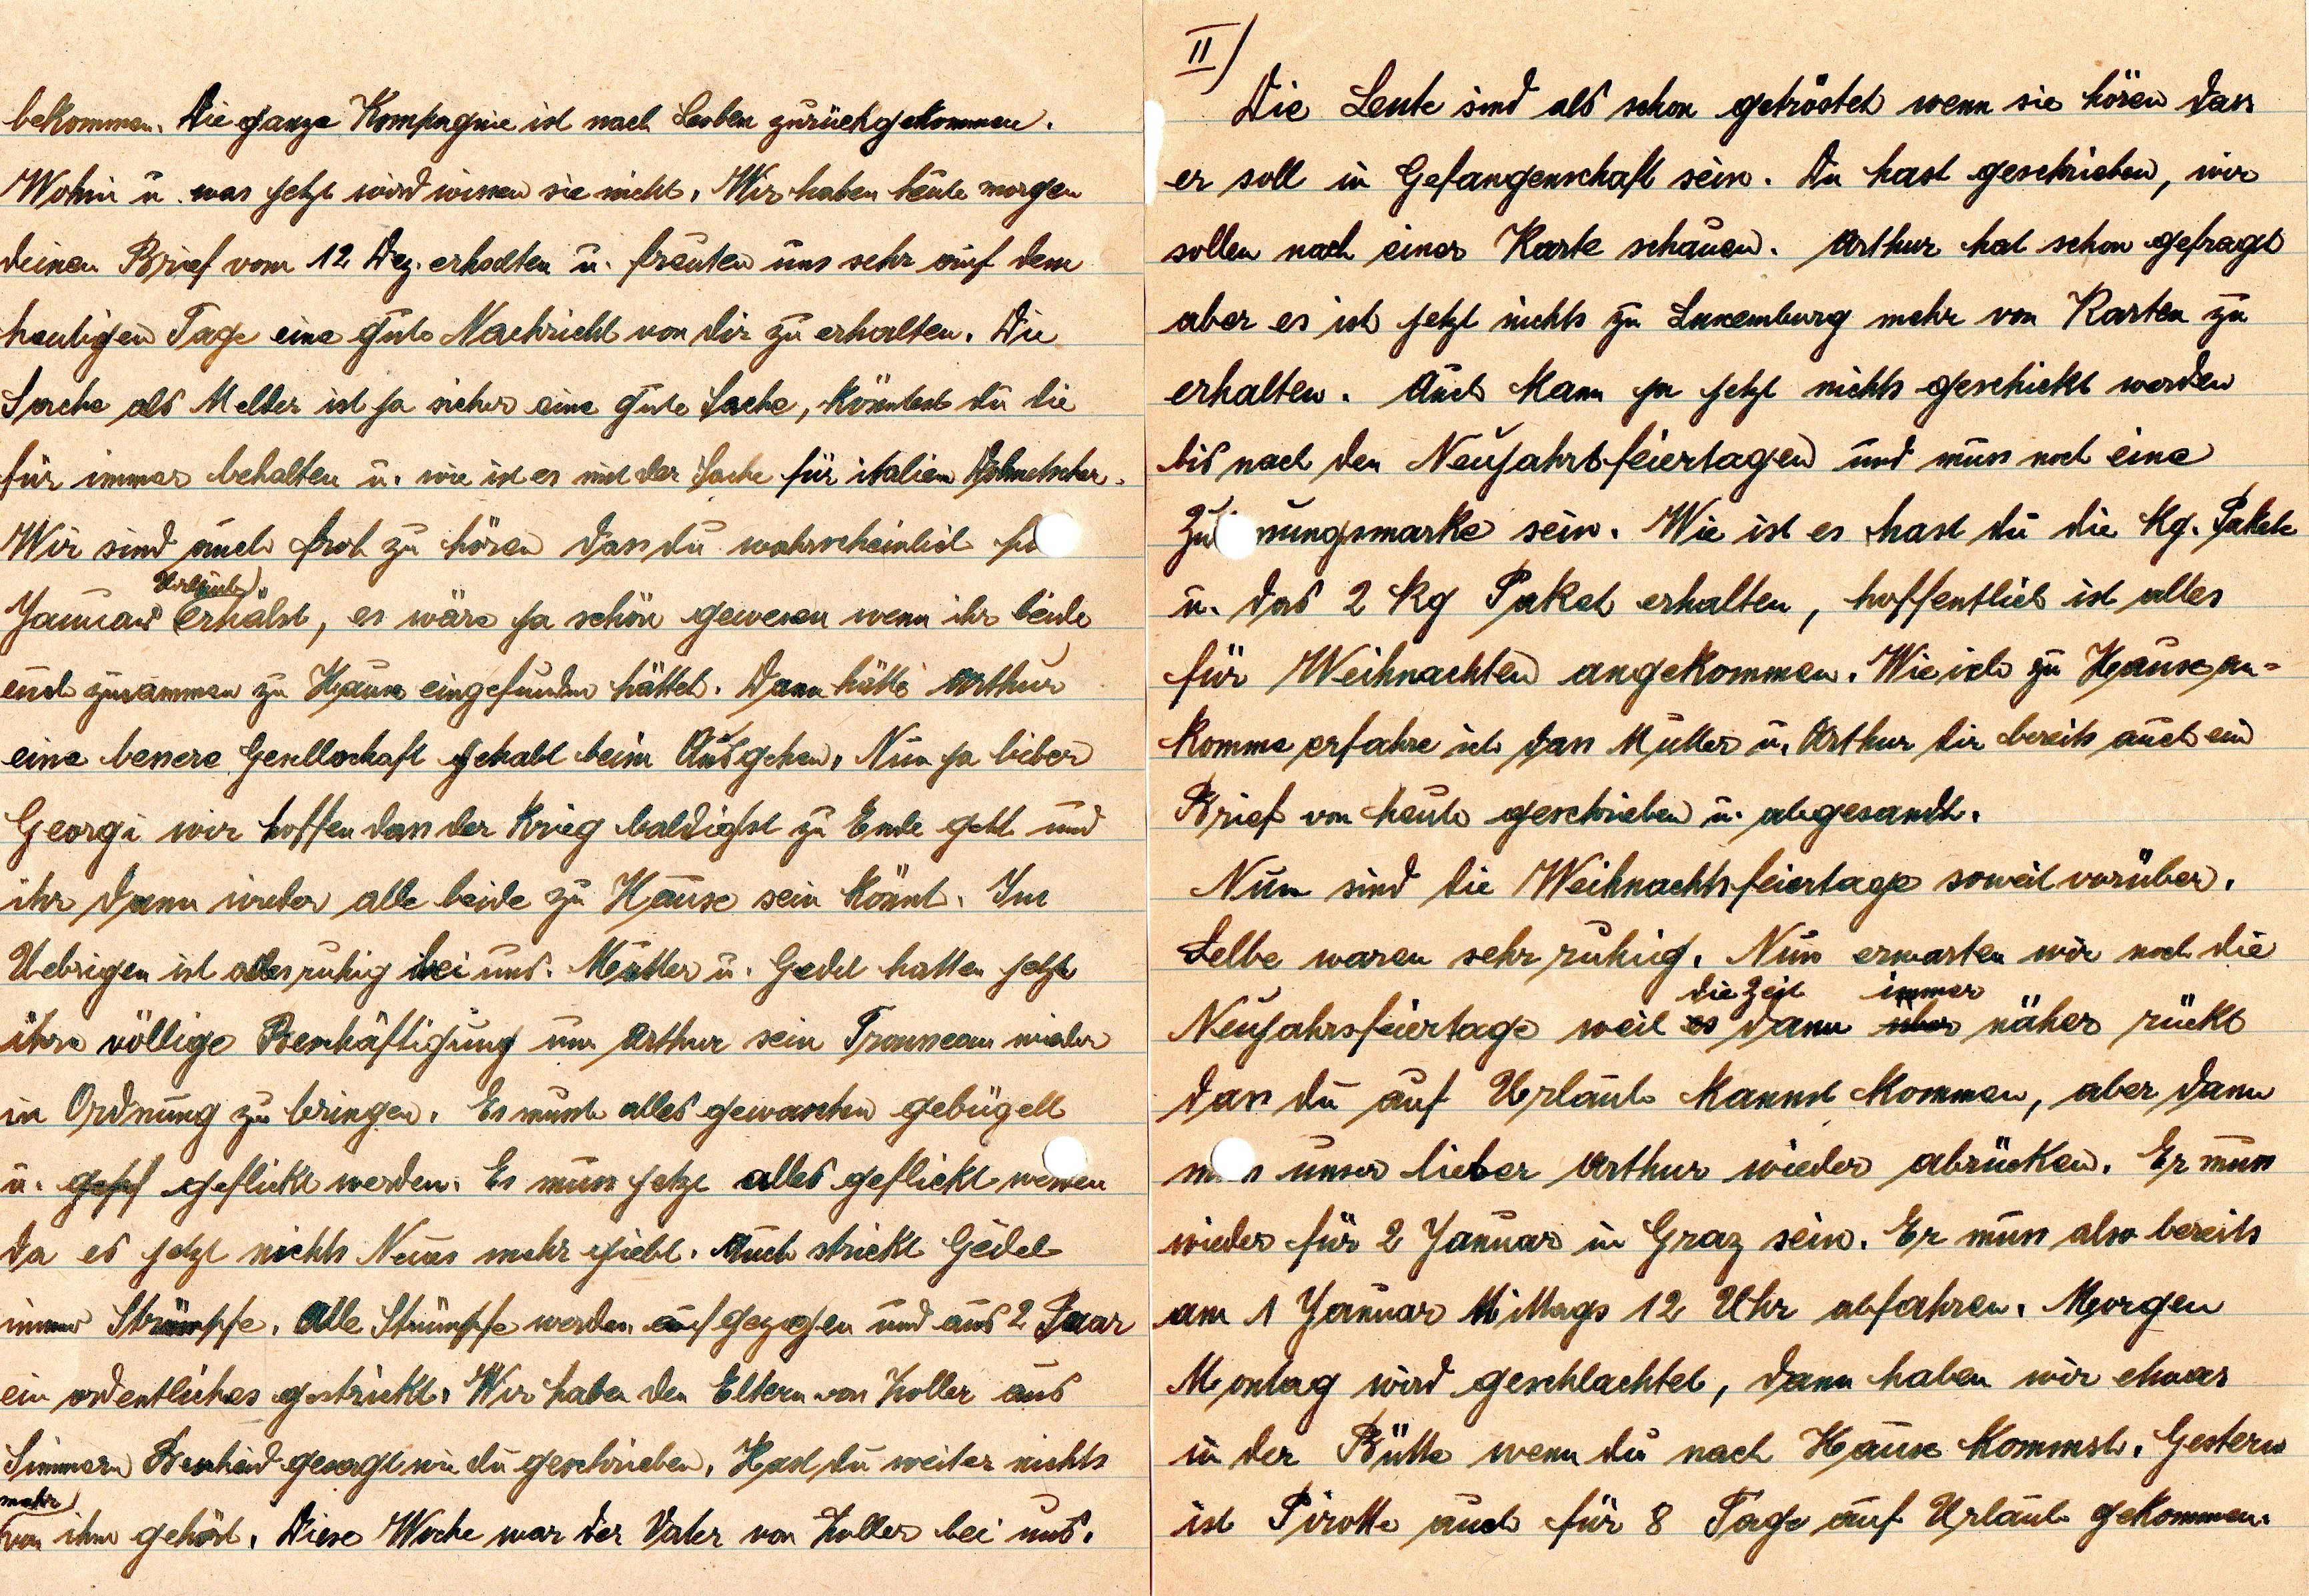 bekommen. Die ganze Kompagnie ist nach Leoben zurückgekommen.
Wohin u. was jetzt wird wissen sie nicht. Wir haben heute morgen
deinen Brief vom 12 Dez. erhalten u. freuten uns sehr auf dem
heutigen Tage eine gute Nachricht von dir zu erhalten. Die
Sache als Melder ist ja sicher eine gute Sache, könntest du die
für immer behalten u. wie ist es mit der Sache für italien Dolmetscher.
Wir sind auch froh zu hören dass du wahrscheinlich
Januar Urlaub erhälst, es wäre ja schön gewesen wenn ihr beide
euch zusammen zu Hause eingefunden hättet. Dann hätte Arthur
eine bessere Gesellschaft gehabt beim Ausgehen. Nun ja lieber
Georgi wir hoffen dass der Krieg baldigst zu Ende geht und
ihr dann wieder alle beide zu Hause sein könnt. Im
Uebrigen ist alles ruhig bei uns. Mutter u. Gedel hatten jetzt
ihre völlige Beschäftigung um Arthur sein Trousseau wieder
in Ordnung zu bringen. Es musste alles gewaschen gebügelt
u. geflickt werden. Es muss jetzt alles geflickt werden
da es jetzt nichts Neues mehr giebt. Auch strickt Gedel
immer Strümpfe. Alle Strümpfe werden aufgezogen und aus 2 Paar
ein ordentliches gestrickt. Wir haben den Eltern von Zoller aus
Simmern Bescheid gesagt wie du geschrieben. Hast du weiter nichts
mehr von ihm gehört. Diese Woche war der Vater von Zoller bei uns.
II)
Die Leute sind als schon getröstet wenn sie hören dass
er soll in Gefangenschaft sein. Du hast geschrieben, wir
sollen nach einer Karte schauen. Arthur hat schon gefragt
aber es ist jetzt nichts zu Luxemburg mehr von Karten zu
erhalten. Auch kann ja jetzt nichts geschickt werden
bis nach den Neujahrsfeiertagen und muss noch eine
Zu nungsmarke sein. Wie ist es hast du die Kg. Pakete
u. das 2 Kg Paket erhalten, hoffentlich ist alles
für Weihnachten angekommen. Wie ich zu Hause an=
komme erfahre ich dass Mutter u. Arthur dir bereits auch ein
Brief von heute geschrieben u. abgesandt.
Nun sind die Weihnachtsfeiertage soweit vorüber.
Selbe waren sehr ruhig. Nun erwarten wir noch die
Neujahrsfeiertage weil die Zeit dann immer näher rückt
dass du auf Urlaub kannst kommen, aber dann
m s unser lieber Arthur wieder abrücken. Er muss
wieder für 2 Januar in Graz sein. Er muss also bereits
am 1 Januar Mittags 12 Uhr abfahren. Morgen
Montag wird geschlachtet, dann haben wir etwas
in der Bütte wenn du nach Hause kommst. Gestern
ist Pirotte auch für 8 Tage auf Urlaub gekommen.